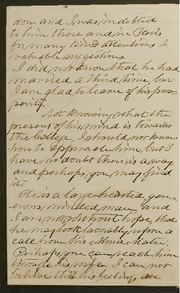 don and I was indebted
to him there and in Paris
for many kind attentions &
valuable suggestions.
I did not know that he had
married a third time, but
I am glad to learn of his pros-
perity.
Not knowing what the
present of his mind is towards
the College I should not know
how to approach him, but I
have no doubt there is a way
and perhaps you may find
it.
He is a large hearted, gen-
erous minded man, and
I am not without hope, that
he may look favorably upon a
call from his Alma Mater.
Perhaps you can reach him
through his wife. I can not
believe that his feelings are